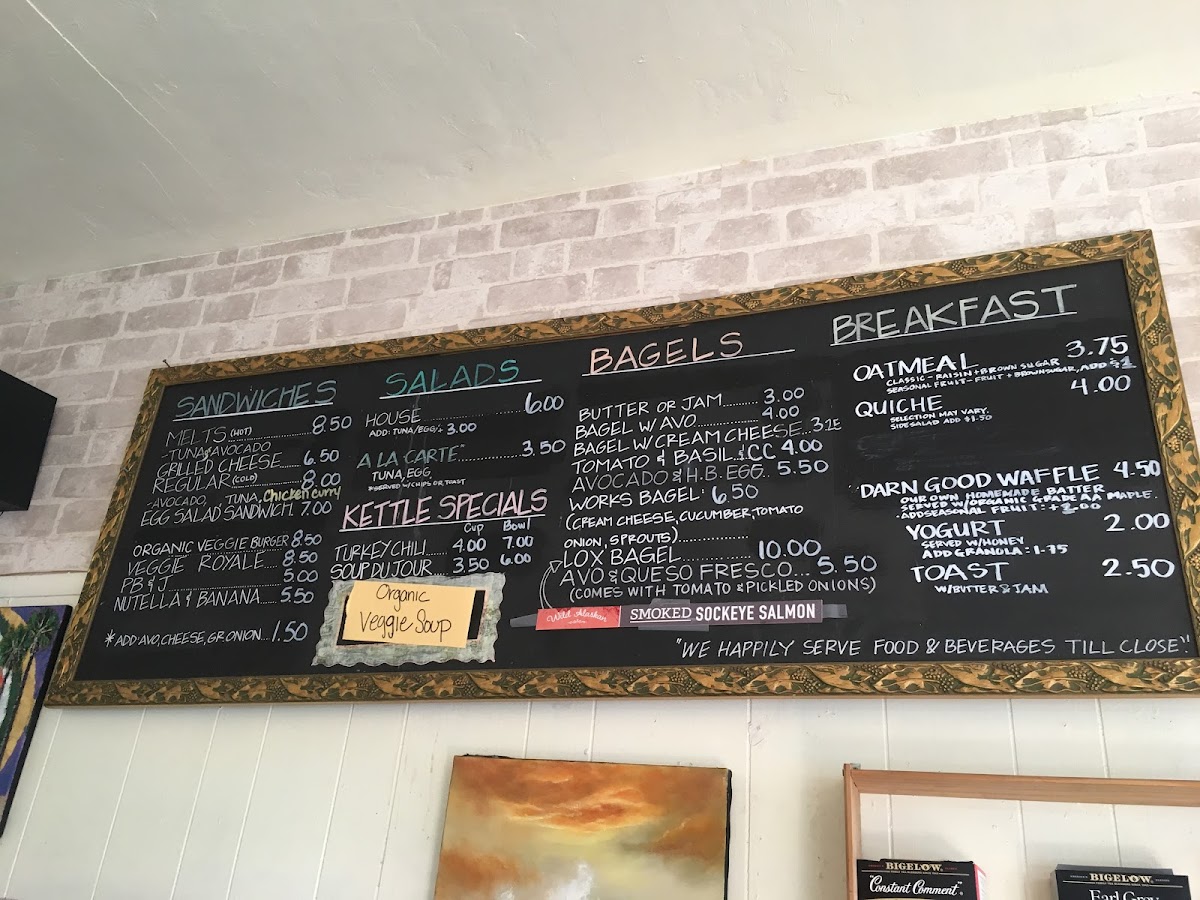 SANDWICHES
MELTS (HOT) 8.50
-TUNA & AVOCADO
GRILLED CHEESE 6.50
REGULAR (COLD) 8.00
-AVOCADO, TUNA, Chicken curry
EGG SALAD SANDWICH. 7.00
ORGANIC VEGGIE BURGER 8.50
VEGGIE ROYALE.... 8.50
PB & J 5.00
NUTELLA & BANANA.... 5.50
*ADD: AVO, CHEESE, GR. ONION... 1.50
SALADS
HOUSE 6.00
ADD: TUNA/EGG/+ 3.00
A LA CARTE 3.50
TUNA, EGG
*SERVED W/CHIPS OR TOAST
KETTLE SPECIALS
Cup Bowl
TURKEY CHILI...... 4.00 7.00
SOUP DU JOUR... 3.50 6.00
Organic
Veggie Soup
BAGELS
BUTTER OR JAM......... 3.00
BAGEL W/ AVO 4.00
BAGEL W/ CREAM CHEESE...
TOMATO & BASIL & CC 4.00
AVOCADO & H.B. EGG. 5.50
WORKS BAGEL 6.50
(CREAM CHEESE, CUCUMBER, TOMATO
ONION, SPROUTS)
LOX BAGEL 10.00
AVO & QUESO FRESCO... 5.50
(COMES WITH TOMATO & PICKLED ONIONS)
Wild Alaskan SMOKED SOCKEYE SALMON
BREAKFAST
OATMEAL 3.75
CLASSIC - RAISIN + BROWN SUGAR
SEASONAL FRUIT - FRUIT + BROWN SUGAR, ADD $1
QUICHE 4.00
SELECTION MAY VARY.
SIDE SALAD ADD $1.50
DARN GOOD WAFFLE 4.50
OUR OWN HOMEMADE BATTER
SERVED W/ORGANIC GRADE AA MAPLE.
-ADD SEASONAL FRUIT: + 2.00
YOGURT 2.00
SERVED W/HONEY
ADD GRANOLA: 1.75
TOAST 2.50
W/BUTTER & JAM
"WE HAPPILY SERVE FOOD & BEVERAGES TILL CLOSE".
BIGELOW
"Constant Comment"
BIGELOW
Earl Grey